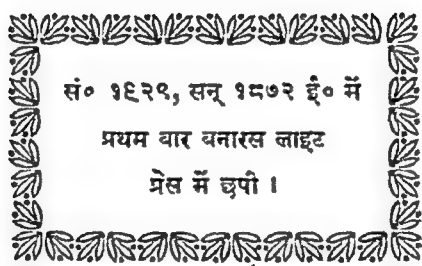 सं० १९२९, सन् १८७२ ई० में
प्रथम वार बनारस लाइट
प्रेस में छपी ।